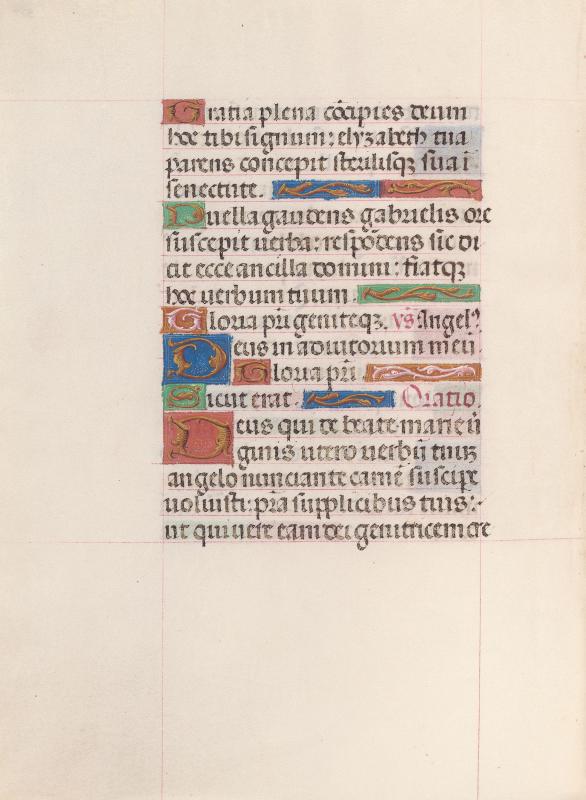 Gratia plena cōcipies deum
hoc tibi signum: elyzabeth tua
parens concepit sterilisqȝ sua ī
senectute.
Puella gaudens gabrielis ore
suscepit uerba: respōdens sic di
cit ecce ancilla domini: fiatqȝ
hoc uerbum tuum.
Gloria pr̄i geniteqȝ. vs̄ Angel⁹.
Deus in adiutorium meū
Gloria pr̄i.
Sicut erat. Oratio.
Deus qui de beate marie ū
ginis utero uerbū tuūȝ
angelo nunciante carnē suscipe
uoluisti: pr̄a supplicibus tuis:
ut qui uere eam dei genitricem cre